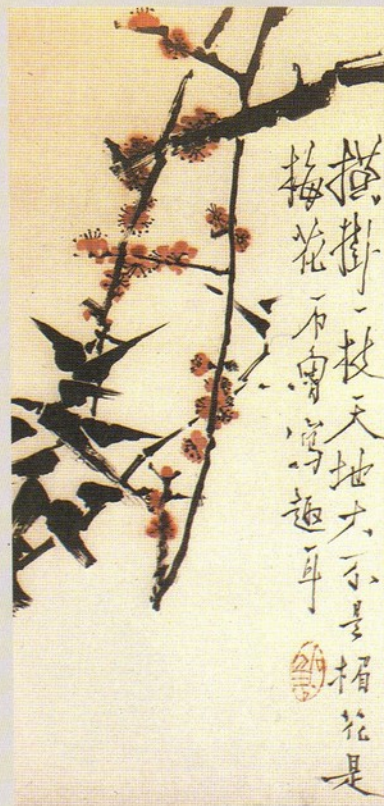 横掛一枝天地大不是梅花是
梅花石魯寫趣耳